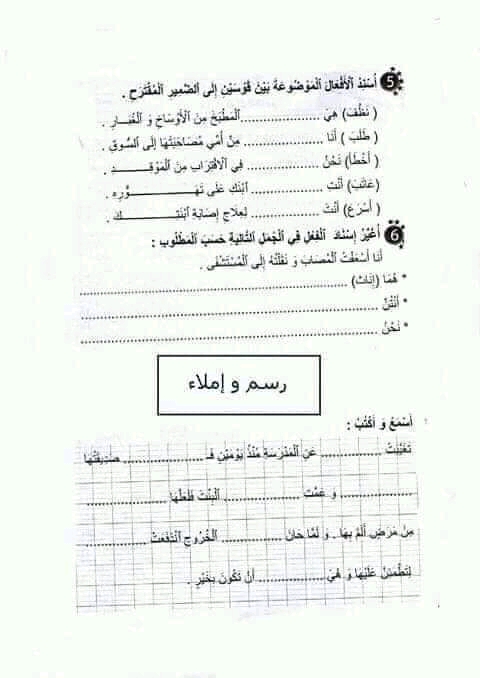 5 أُسْنِدُ ٱلْأَفْعَالَ ٱلْمَوْضُوعَةَ بَيْنَ قَوْسَيْنِ إِلَى ٱلضَّمِيرِ ٱلْمُقْتَرَحِ .
( نَظَّفَ) هِيَ ....................ٱلْمَطْبَخَ مِنَ ٱلْأَوْسَاخِ وَ ٱلْغُبَارِ .
( طَلَبَ ) أَنَا .................... مِنْ أُمِّي مُصَاحَبَتَهَا إِلَى ٱلسُّوقِ .
( أَخْطَأَ) نَحْنُ .................... فِي ٱلْاقْتِرَابِ مِنَ ٱلْمَوْقِـــــدِ .
(عَاتَبَ) أَنْتِ .................... ٱبْنَكِ عَلَى تَهَـــــــــوُّرِهِ .
( أَسْرَعَ) أَنْتَ .................... لِعِلَاجِ إِصَابَةِ ٱبْنَتِــــــــــكَ .
6 أُغَيِّرُ إِسْنَادَ ٱلْفِعْلِ فِي ٱلْجُمَلِ ٱلتَّالِيَةِ حَسَبَ ٱلْمَطْلُوبِ :
أَنَا أَسْعَفْتُ ٱلْمُصَابَ وَ نَقَلْتُهُ إِلَى ٱلْمُسْتَشْفَى .
* هُمَا (إِنَاث) ........................................
* أَنْتُنَّ ........................................
* نَحْنُ ........................................
رسم و إملاء
أَسْمَعُ وَ أَكْتُبُ :
تَغَيَّبَتْ .................... عَنِ ٱلْمَدْرَسَةِ مُنْذُ يَوْمَيْنِ فَـ .................... صَدِيقَتُهَا
.................... وَ عَمَّتِ .................... ٱلْبِنْتَ فَلَعَلَّهَا ....................
مِنْ مَرَضٍ أَلَمَّ بِهَا . وَ لَمَّا حَانَ .................... ٱلْخُرُوجِ ٱنْدَفَعَتْ ....................
لِتَطْمَئِنَّ عَلَيْهَا وَ هِيَ .................... أَنْ تَكُونَ بِخَيْرٍ .